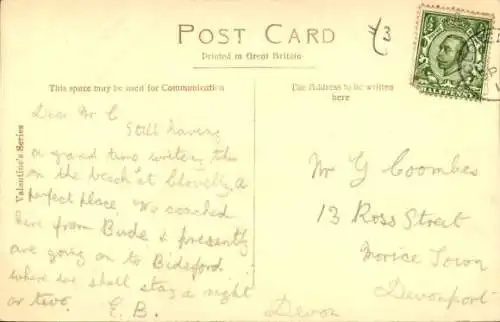 POST CARD
Printed in Great Britain
This space may be used for Communication
The Address to be written
here
Valentine's Series
3
HALFPENNY
Dear Mr C
Still having
a grand time writing this
on the beach at Clovelly, a
perfect place. We coached
here from Bude & presently
are going on to Bideford
where we shall stay a night
or two. E. B.
Mr G Coombes
13 Ross Street
Morice Town
Devonport
Devon